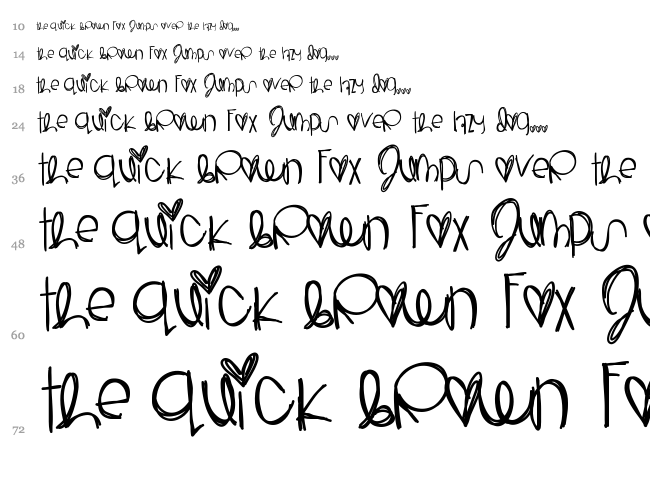 10 the quick brown fox jumps over the lazy dog...
14 the quick brown fox jumps over the lazy dog....
18 the quick brown fox jumps over the lazy dog....
24 the quick brown fox jumps over the lazy dog....
36 the quick brown fox jumps over the
48 the quick brown fox jumps
60 the quick brown fox
72 the quick brown